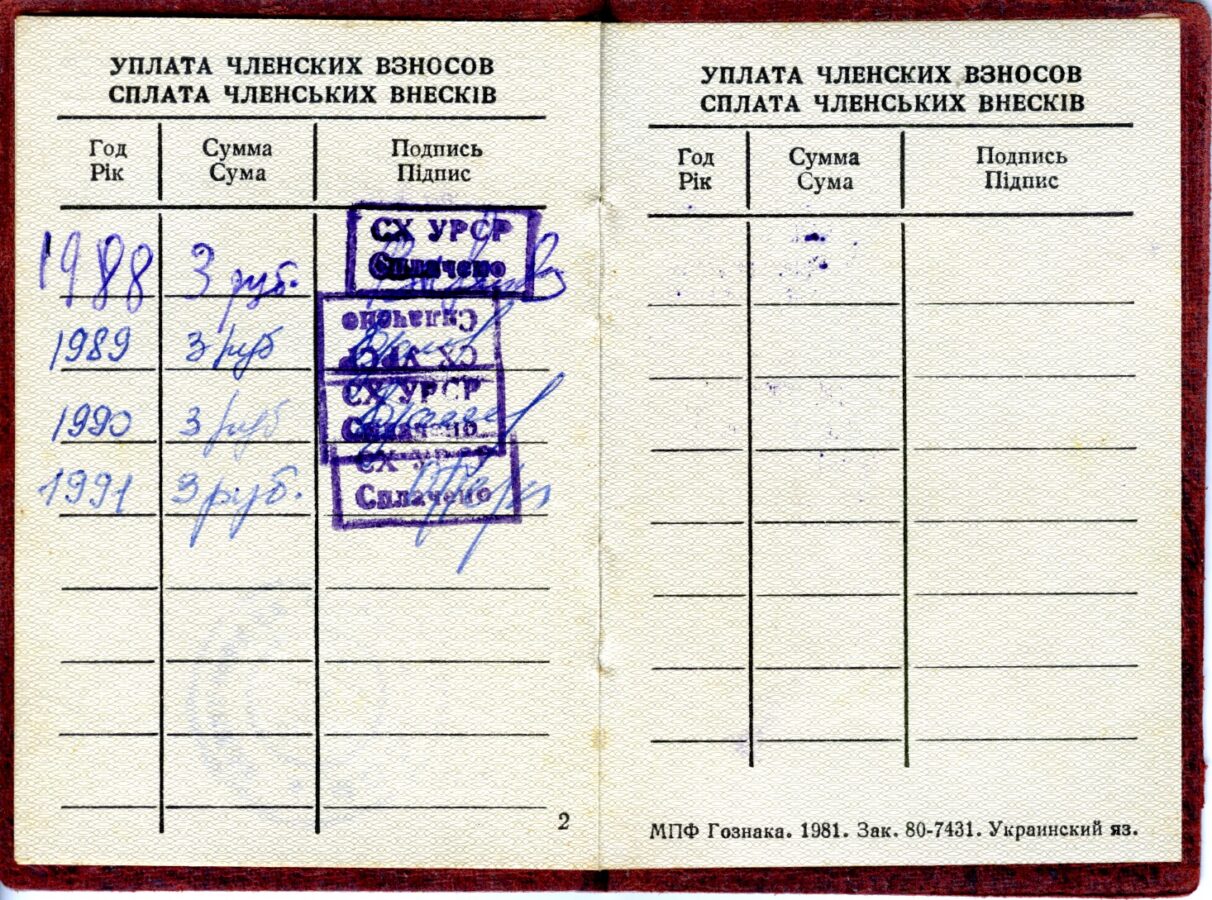 УПЛАТА ЧЛЕНСКИХ ВЗНОСОВ
СПЛАТА ЧЛЕНСЬКИХ ВНЕСКІВ
Год Сумма Подпись
Рік Сума Підпис
СХ УРСР
1988 3 руб. Сплачено
Сплачено
1989 3 руб
СХ УРСР
СХ УРСР
1990 3 руб Сплачено
СХ УРСР
1991 3 руб. Сплачено
2
УПЛАТА ЧЛЕНСКИХ ВЗНОСОВ
СПЛАТА ЧЛЕНСЬКИХ ВНЕСКІВ
Год Сумма Подпись
Рік Сума Підпис
МПФ Гознака. 1981. Зак. 80-7431. Украинский яз.